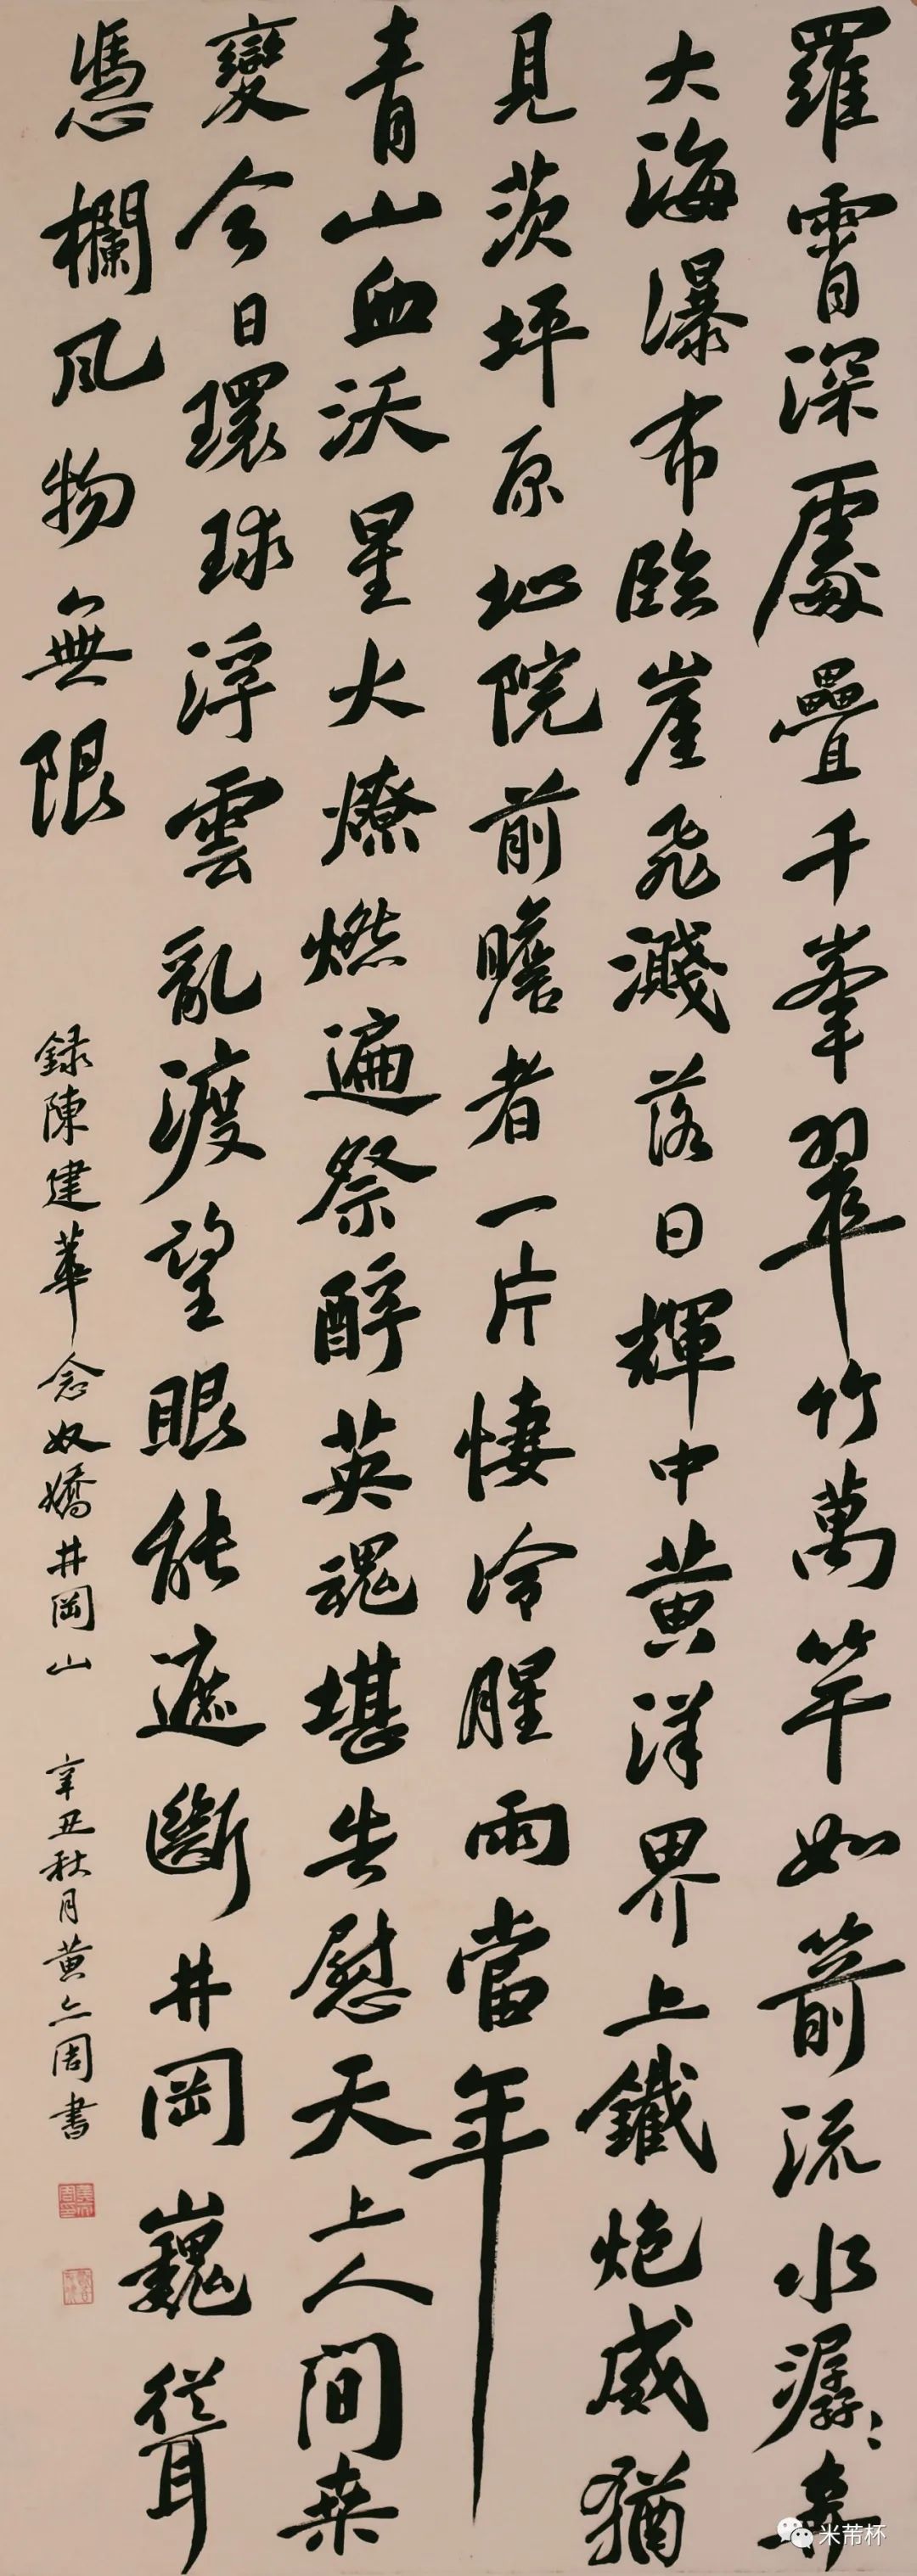 羅霄深處疊千峯翠竹萬竿如箭流水潺潺奔
大海瀑布臨崖飛濺落日輝中黄洋界上鐵炮威猶
見茨坪原址院前瞻者一片悽冷腥雨當年
青山血沃星火燎燃遍祭酹英魂堪告慰天上人間桒
變今日環球浮雲亂渡望眼能遮斷井岡巍聳
憑欄風物無限
録陳建華念奴嬌井岡山 辛丑秋月黄亦周書
米芾杯